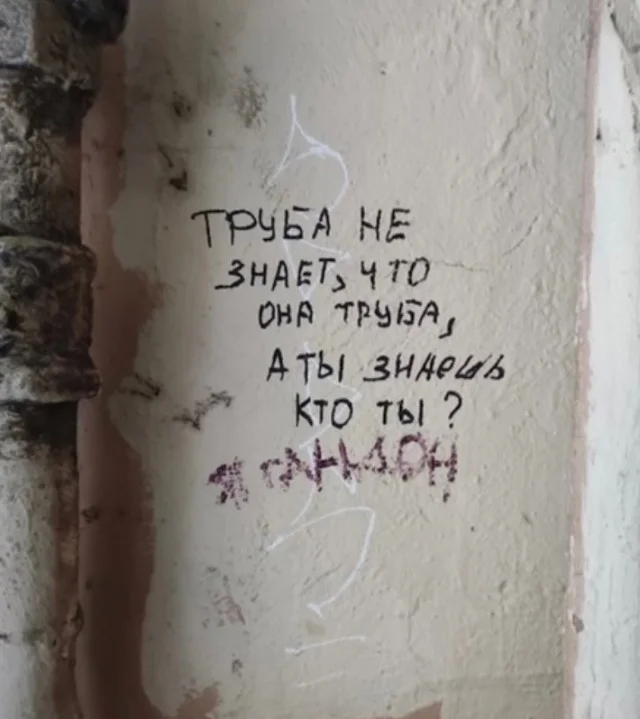 ТРУБА НЕ
ЗНАЕТ, ЧТО
ОНА ТРУБА,
А ТЫ ЗНАЕШЬ
КТО ТЫ ?
Я ГАНДОН